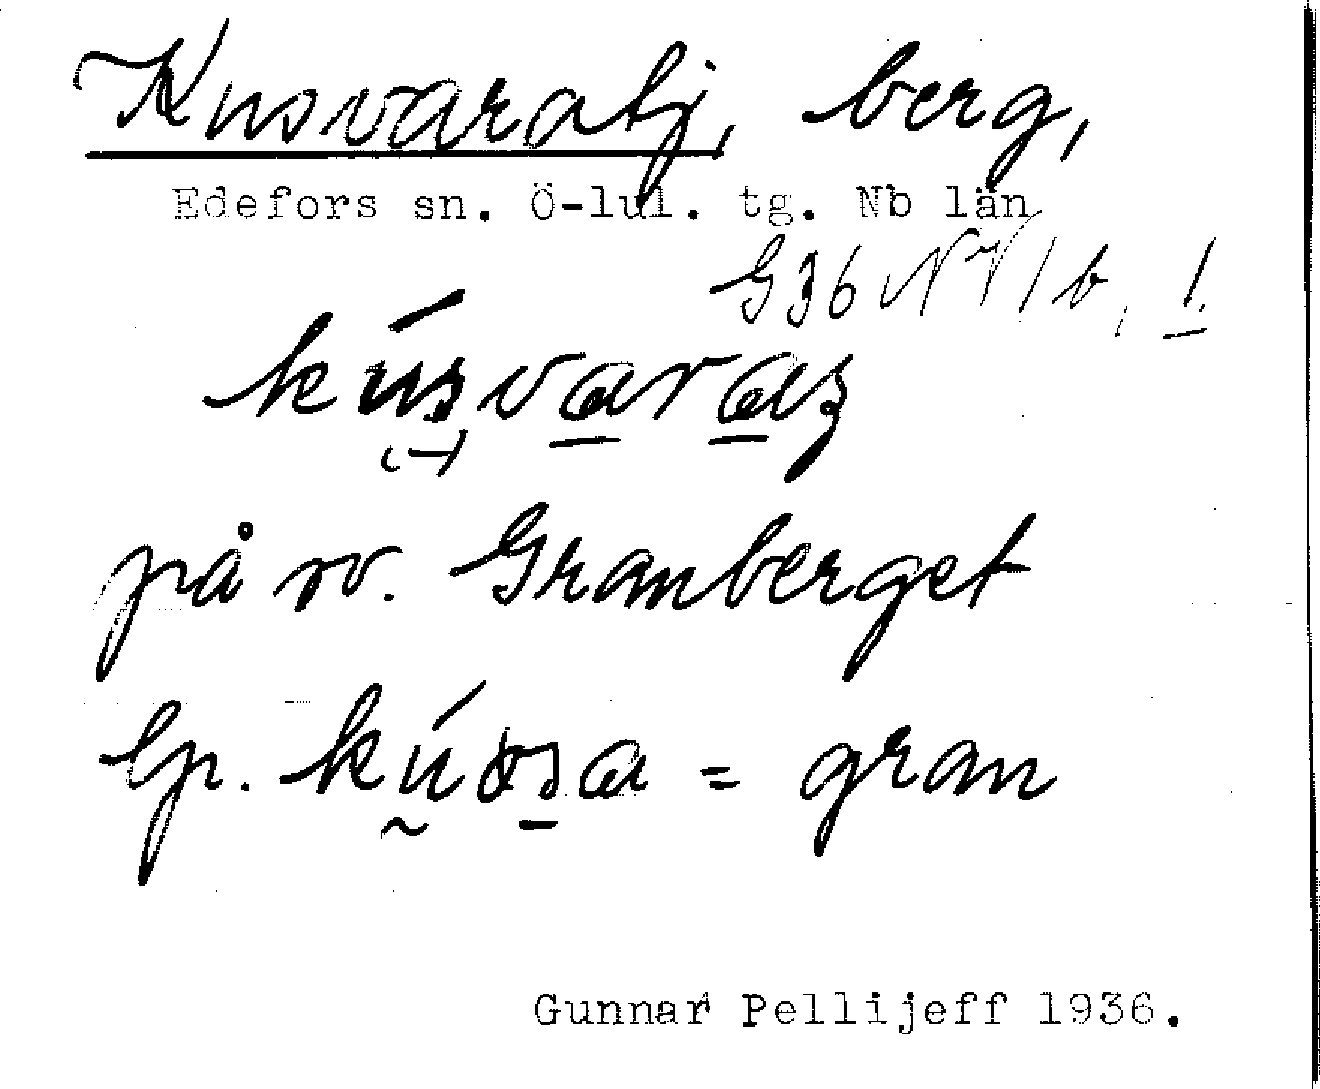 Kusvaratj, berg,
Edefors sn. Ö-lul. tg. Nb län
G36 NV 1 b, 1.
kúsvaraʒ
på sv. Granberget
lp. kúosa = gran
Gunnar Pellijeff 1936.